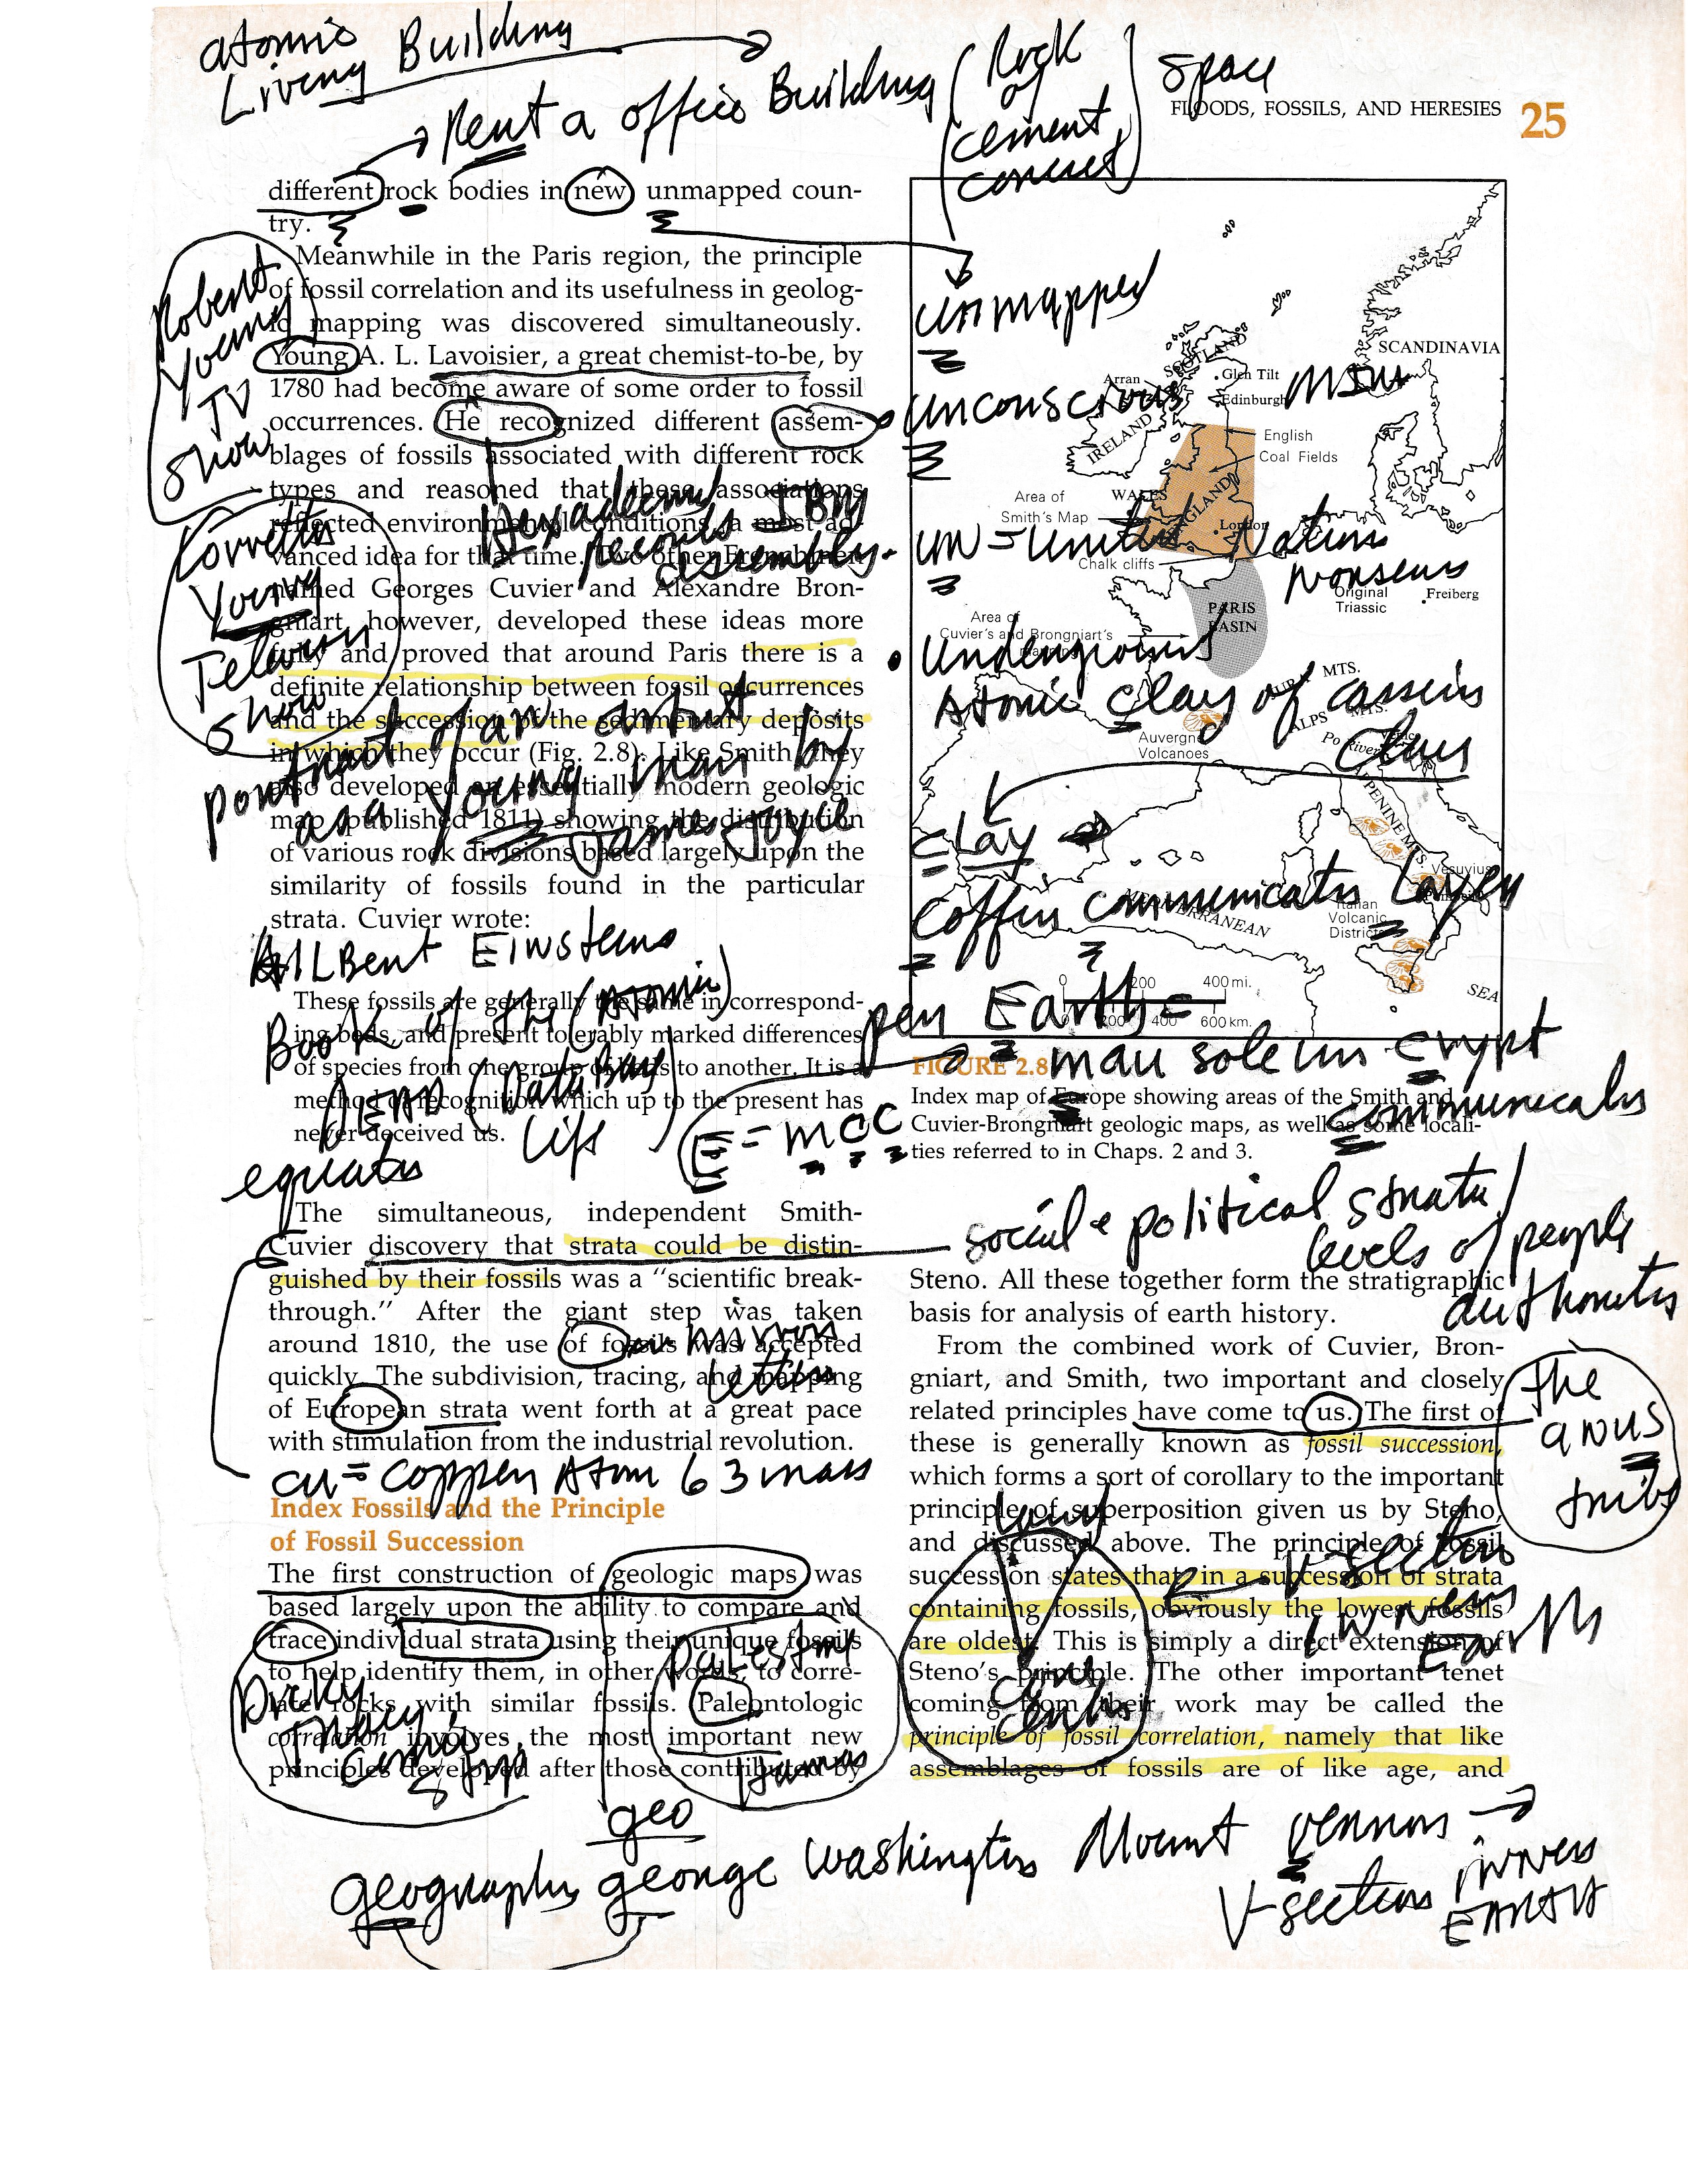 atomic
Living Building
Rent a office Building
(Rock
of
cement,
Space
FLOODS, FOSSILS, AND HERESIES 25
different rock bodies in new unmapped coun-
try.
Meanwhile in the Paris region, the principle
of fossil correlation and its usefulness in geolog-
ic mapping was discovered simultaneously.
Young A. L. Lavoisier, a great chemist-to-be, by
1780 had become aware of some order to fossil
occurrences. He recognized different assem-
blages of fossils associated with different rock
types and reasoned that these associations
reflected environmental conditions, a most ad-
vanced idea for that time. Two other Frenchmen
named Georges Cuvier and Alexandre Bron-
gniart, however, developed these ideas more
fully and proved that around Paris there is a
definite relationship between fossil occurrences
and the succession of the sedimentary deposits
in which they occur (Fig. 2.8). Like Smith, they
also developed an essentially modern geologic
map (published 1811) showing the distribution
of various rock divisions based largely upon the
similarity of fossils found in the particular
strata. Cuvier wrote:
Robert
Young
TV
Show
Young
Show
IBM
assembly
portrait of an artist
as a Young man by
James Joyce
Einsteins
Book of the (Atomic)
DEAD (Data Base
Life
equates
E = mcc
These fossils are generally the same in correspond-
ing beds, and present tolerably marked differences
of species from one group of beds to another. It is a
method of recognition which up to the present has
never deceived us.
The simultaneous, independent Smith-
Cuvier discovery that strata could be distin-
guished by their fossils was a “scientific break-
through.” After the giant step was taken
around 1810, the use of fossils was accepted
quickly. The subdivision, tracing, and mapping
of European strata went forth at a great pace
with stimulation from the industrial revolution.
mirror
letters
cu = copper Atom 63 mass
Index Fossils and the Principle
of Fossil Succession
The first construction of geologic maps was
based largely upon the ability to compare and
trace individual strata using their unique fossils
to help identify them, in other words, to corre-
late rocks with similar fossils. Paleontologic
correlation involves the most important new
principles developed after those contributed by
Dicky
Tracy
Comic
Strip
Hamas
geo
george Washington Mount
V-section
EARTH
unmapped
unconscious
un = United Nations
Underground
Atomic clay of
clay
Coffin communicates Layer
pen Earth =
mausoleum crypt
communicates
SCANDINAVIA
SCOTLAND
Glen Tilt
Arran
Edinburgh
IRELAND
English
Coal Fields
WALES
Area of
Smith's Map
ENGLAND
London
Chalk cliffs
Original
Triassic
Freiberg
PARIS
BASIN
Area of
Cuvier's and Brongniart's
JURA MTS.
ALPS MTS.
Po River
Auvergne
Volcanoes
APENNINE MTS.
Vesuvius
Italian
Volcanic
Districts
MEDITERRANEAN
SEA
0 200 400 mi.
0 200 400 600 km.
FIGURE 2.8
Index map of Europe showing areas of the Smith and
Cuvier-Brongniart geologic maps, as well as some locali-
ties referred to in Chaps. 2 and 3.
social + political strata/
levels of people
authorities
Steno. All these together form the stratigraphic
basis for analysis of earth history.
From the combined work of Cuvier, Bron-
gniart, and Smith, two important and closely
related principles have come to us. The first of
these is generally known as fossil succession,
which forms a sort of corollary to the important
principle of superposition given us by Steno,
and discussed above. The principle of fossil
succession states that in a succession of strata
containing fossils, obviously the lowest fossils
are oldest. This is simply a direct extension of
Steno's principle. The other important tenet
coming from their work may be called the
principle of fossil correlation, namely that like
assemblages of fossils are of like age, and
the
anus
V-section
Earth